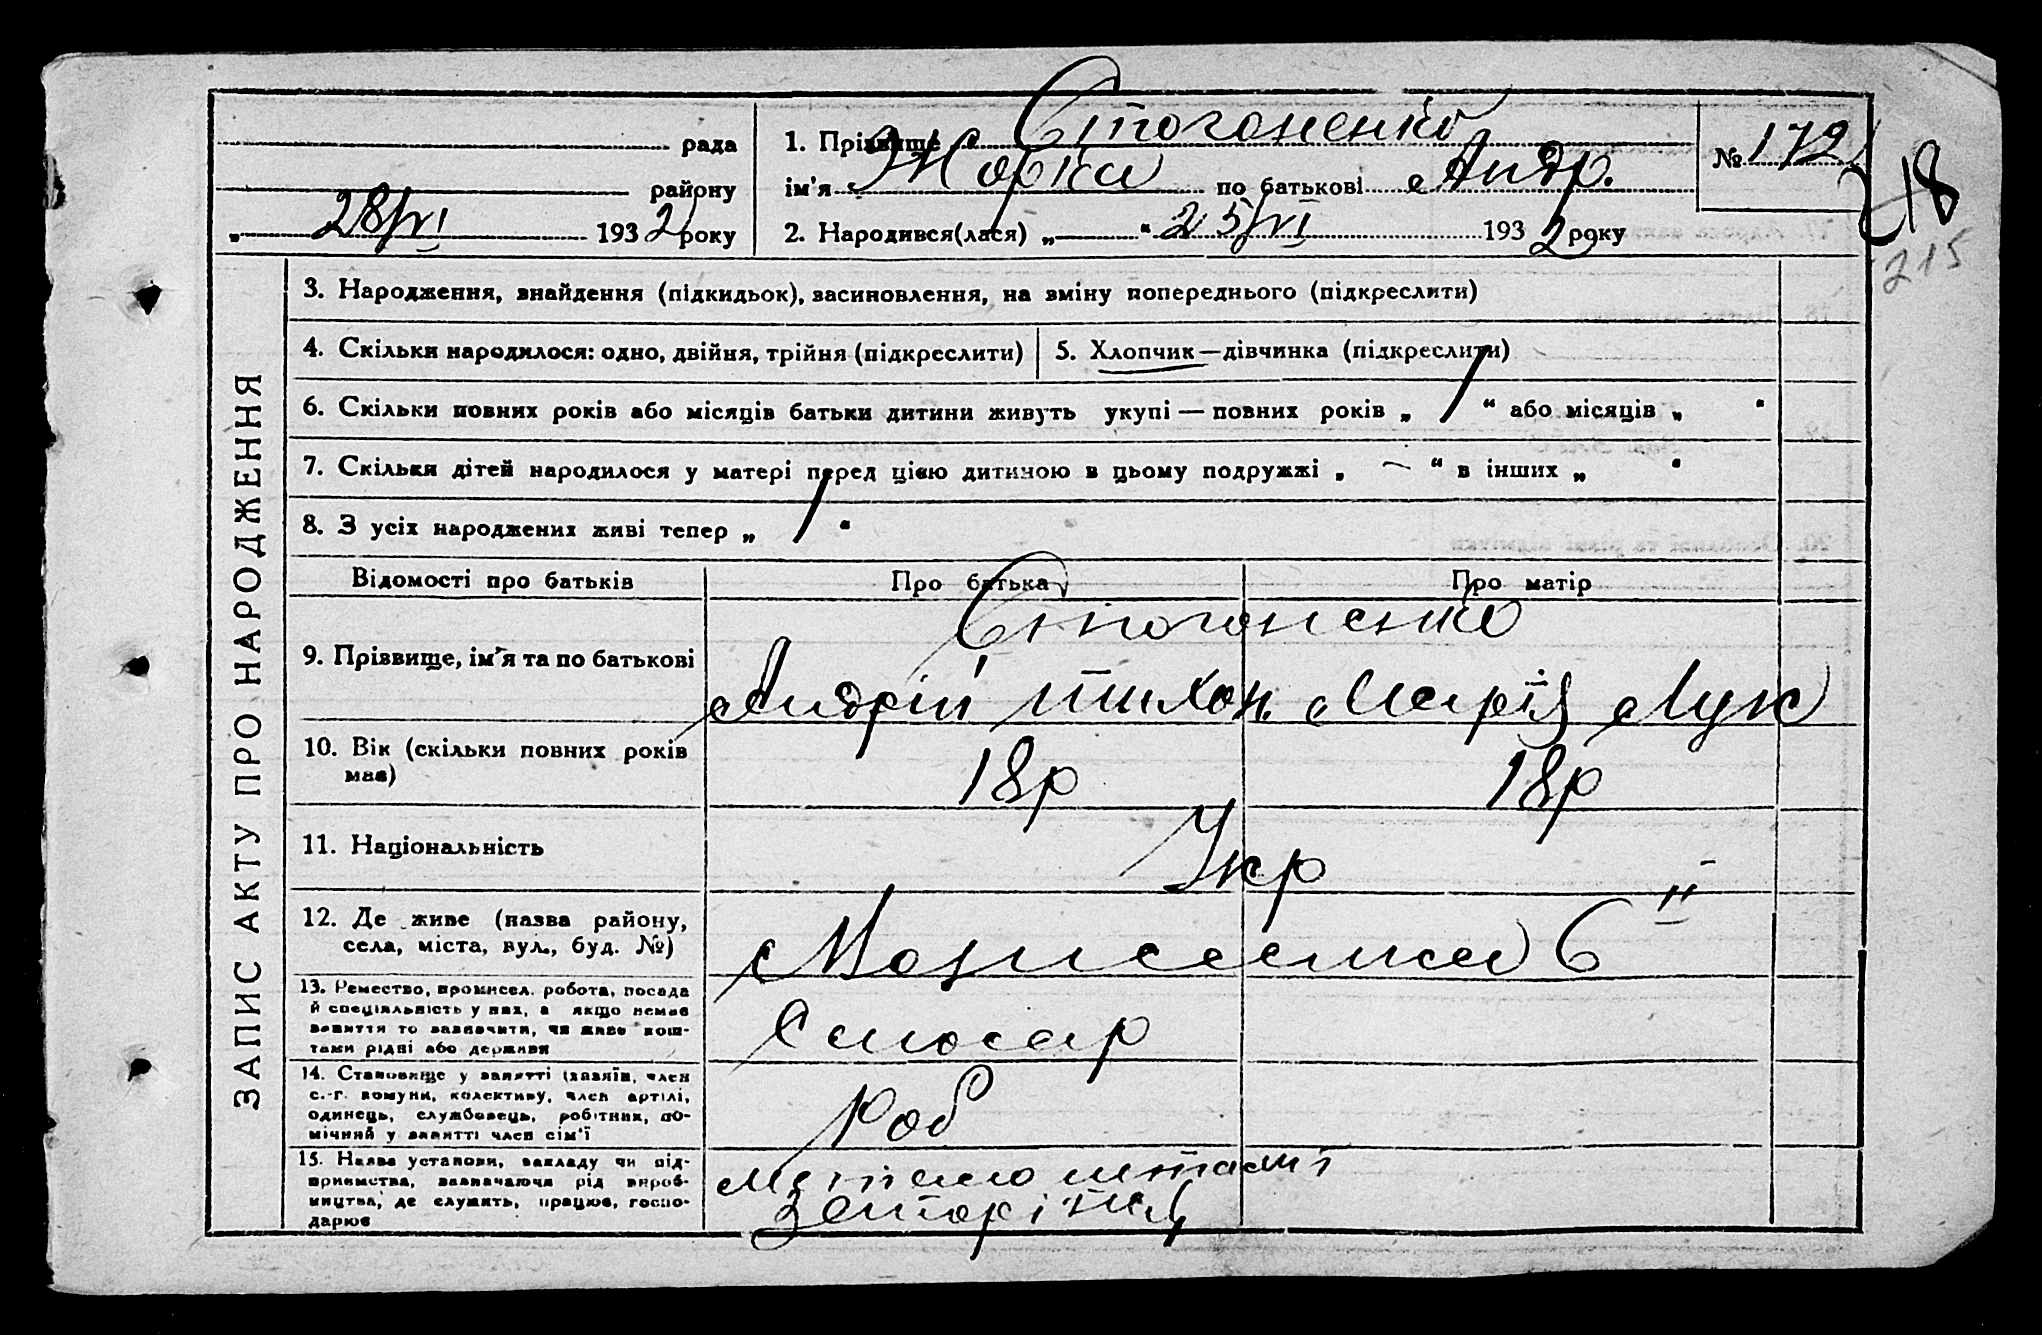 рада
району
„ 28/VI 1932 року
1. Прізвище Стогоненко
ім'я Жорка по батькові Андр.
2. Народився(лася) „ “ 25/VI 1932 року
№ 172
48
215
ЗАПИС АКТУ ПРО НАРОДЖЕННЯ
3. Народження, знайдення (підкидьок), засиновлення, на зміну попереднього (підкреслити)
4. Скільки народилося: одно, двійня, трійня (підкреслити)
5. Хлопчик—дівчинка (підкреслити)
6. Скільки повних років або місяців батьки дитини живуть укупі — повних років „ 1 “ або місяців „ “
7. Скільки дітей народилося у матері перед цією дитиною в цьому подружжі „ — “ в інших „ “
8. З усіх народжених живі тепер „ 1 “
Відомості про батьків
Про батька
Про матір
9. Прізвище, ім'я та по батькові
Стогоненко
Андрій Тихон. Марія Лук
10. Вік (скільки повних років
має)
18р
18р
11. Національність
Укр
12. Де живе (назва району,
села, міста, вул., буд. №)
6
13. Ремество, промисел, робота, посада
й спеціяльність у них, а якщо немає
заняття то зазначити, чи живе кош-
тами рідні або держави
Слюсар
14. Становище у занятті (хазяїн, член
с.-г. комуни, колективу, член артілі,
одинець, службовець, робітник, по-
мічний у занятті член сім'ї
Роб
15. Назва установи, закладу чи під-
приємства, зазначаючи рід вироб-
ництва, де служить, працює, госпо-
дарює